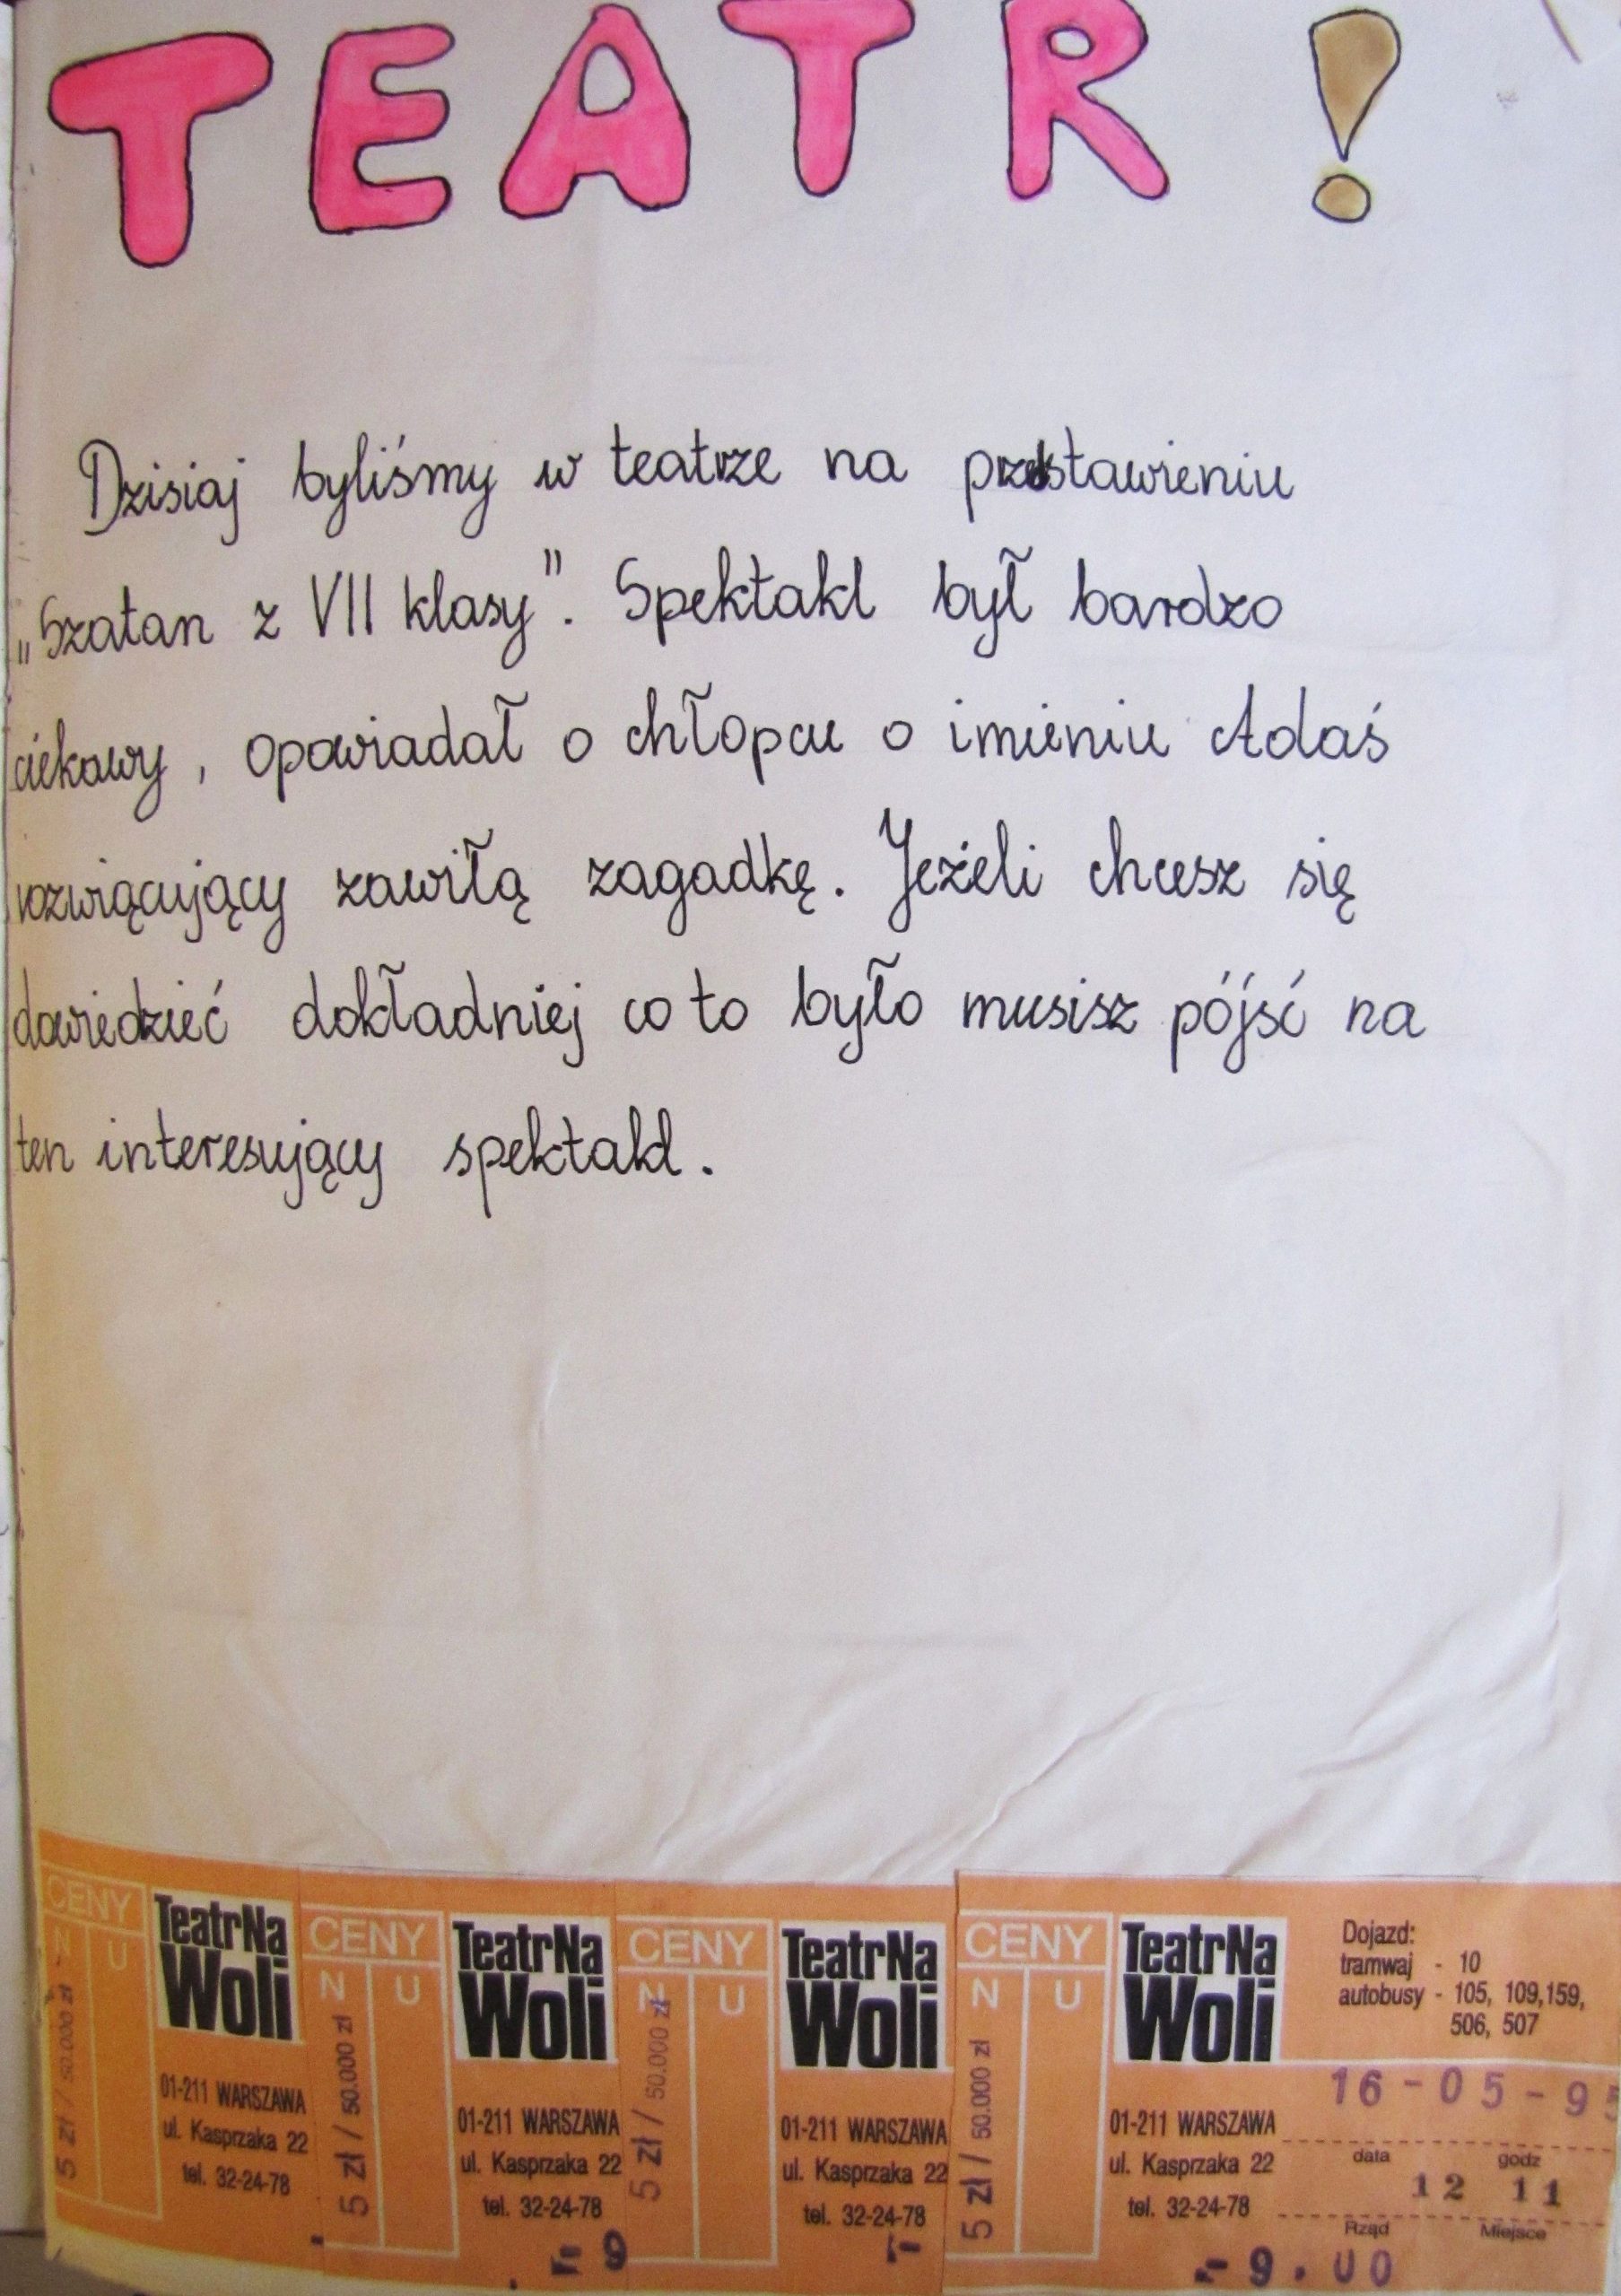 TEATR!
Dzisiaj byliśmy w teatrze na przedstawieniu
„Szatan z VII klasy”. Spektakl był bardzo
ciekawy, opowiadał o chłopcu o imieniu Adaś
rozwiącujący zawiłą zagadkę. Jeżeli chcesz się
dowiedzieć dokładniej co to było musisz pójść na
ten interesujący spektakl.
CENY
N U
5 zł / 50.000 zł
TeatrNa
Woli
01-211 WARSZAWA
ul. Kasprzaka 22
tel. 32-24-78
CENY
N U
5 zł / 50.000 zł
TeatrNa
Woli
01-211 WARSZAWA
ul. Kasprzaka 22
tel. 32-24-78
- 9
CENY
N U
5 zł / 50.000 zł
TeatrNa
Woli
01-211 WARSZAWA
ul. Kasprzaka 22
tel. 32-24-78
CENY
N U
5 zł / 50.000 zł
TeatrNa
Woli
01-211 WARSZAWA
ul. Kasprzaka 22
tel. 32-24-78
Dojazd:
tramwaj - 10
autobusy - 105, 109,159,
506, 507
16-05-95
data godz
12 11
Rząd Miejsce
- 9.00